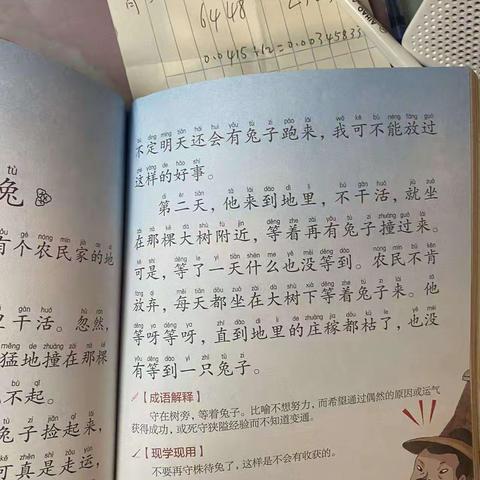 6448
0.0415÷12=0.00345833
兔
有个农民家的地
里干活。忽然，
猛地撞在那棵
不起。
兔子捡起来，
可真是走运，
不定明天还会有兔子跑来，我可不能放过
这样的好事。
第二天，他来到地里，不干活，就坐
在那棵大树附近，等着再有兔子撞过来。
可是，等了一天什么也没等到。农民不肯
放弃，每天都坐在大树下等着兔子来。他
等呀等呀，直到地里的庄稼都枯了，也没
有等到一只兔子。
【成语解释】
守在树旁，等着兔子。比喻不想努力，而希望通过偶然的原因或运气
获得成功，或死守狭隘经验而不知道变通。
【现学现用】
不要再守株待兔了，这样是不会有收获的。